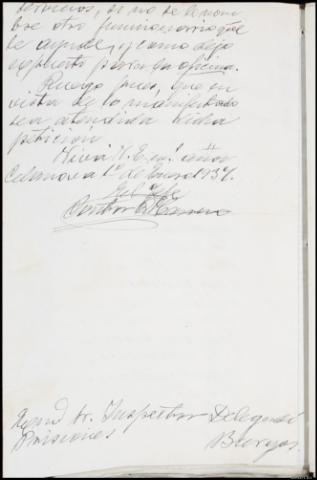 servicios, si no se le nom-
bre otro funcionario que
le ayude, y como dejo
expuesto para la oficina.
Ruego pues, que en
vista de lo manifestado
sea atendida dicha
petición
Viva V. E. m.s años
Celanova 1º de Enero 1937.
El Jefe
Ilmo Sr. Inspector Delegado
Prisiones
Burgos.